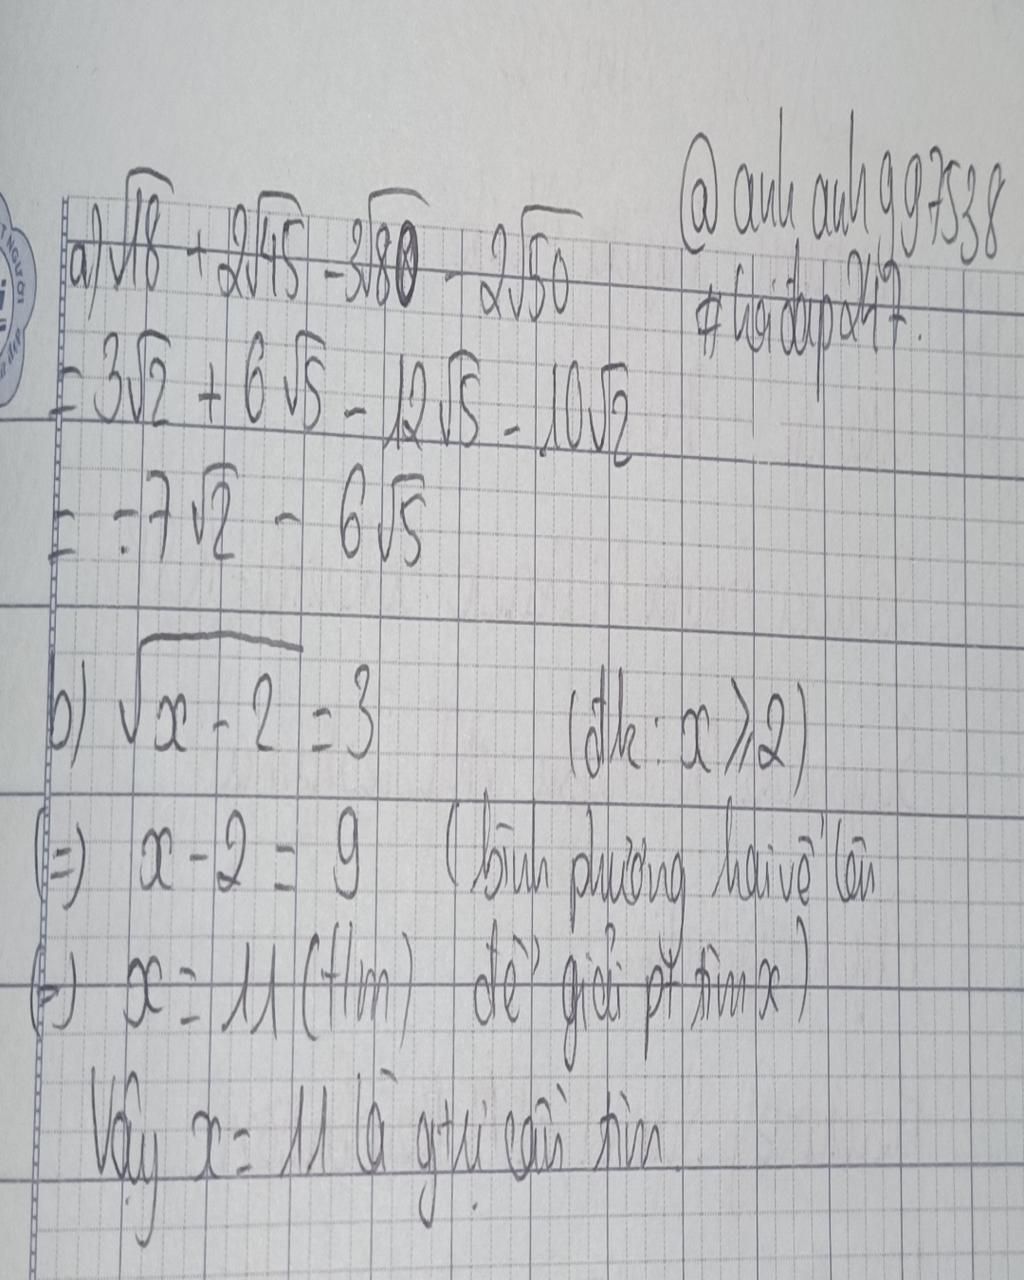 @ anh anh 997538
# hoidap247.
a) √18 + 2√45 - 3√80 - 2√50
= 3√2 + 6√5 - 12√5 - 10√2
= -7√2 - 6√5
b) √x - 2 = 3 (đk: x ⩾ 2)
(=) x - 2 = 9 (bình phương hai vế lên
(=) x = 11 (t/m) để giải pt tìm x)
Vậy x = 11 là gtrị cần tìm
NGƯỜI